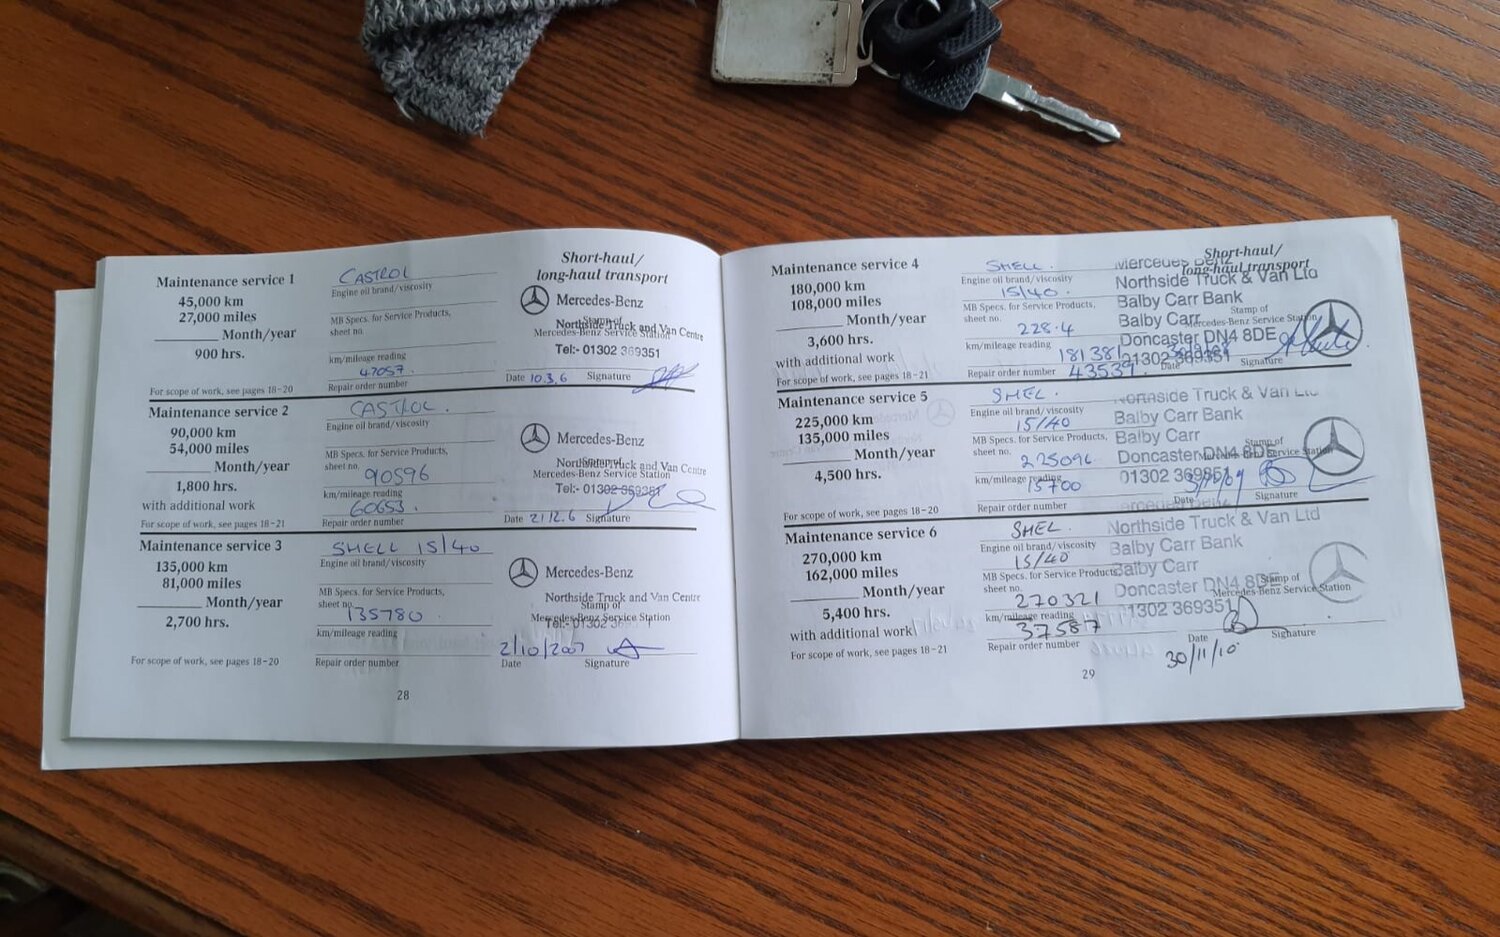 Maintenance service 1
45,000 km
27,000 miles
Month/year
900 hrs.
For scope of work, see pages 18-20
CASTROL
Engine oil brand/viscosity
MB Specs. for Service Products,
sheet no.
km/mileage reading
47057.
Repair order number
Short-haul/
long-haul transport
Mercedes-Benz
Northside Truck and Van Centre
Stamp of
Mercedes-Benz Service Station
Tel:- 01302 369351
Date 10.3.6 Signature
Maintenance service 2
90,000 km
54,000 miles
Month/year
1,800 hrs.
with additional work
For scope of work, see pages 18-21
CASTROL.
Engine oil brand/viscosity
MB Specs. for Service Products,
sheet no.
90596
km/mileage reading
60653.
Repair order number
Mercedes-Benz
Northside Truck and Van Centre
Stamp of
Mercedes-Benz Service Station
Tel:- 01302 369351
Date Signature
Maintenance service 3
135,000 km
81,000 miles
Month/year
2,700 hrs.
For scope of work, see pages 18-20
SHELL 15/40
Engine oil brand/viscosity
MB Specs. for Service Products,
sheet no.
135780
km/mileage reading
Repair order number
Mercedes-Benz
Northside Truck and Van Centre
Stamp of
Mercedes-Benz Service Station
Tel:- 01302
2/10/2007
Date Signature
28
Maintenance service 4
180,000 km
108,000 miles
Month/year
3,600 hrs.
with additional work
For scope of work, see pages 18-21
SHELL.
Engine oil brand/viscosity
15/40.
MB Specs. for Service Products,
sheet no.
228.4
km/mileage reading
181381
Repair order number
Short-haul/
long-haul transport
Mercedes Benz
Northside Truck & Van Ltd
Balby Carr Bank
Balby Carr
Stamp of
Mercedes-Benz Service Station
Doncaster DN4 8DE
01302 369351
Date Signature
Maintenance service 5
225,000 km
135,000 miles
Month/year
4,500 hrs.
SHEL.
Engine oil brand/viscosity
15/40
MB Specs. for Service Products,
sheet no.
225096.
km/mileage reading
15700
Repair order number
Northside Truck & Van Ltd
Balby Carr Bank
Balby Carr
Stamp of
Doncaster DN4 8DE
Mercedes-Benz Service Station
01302 369351
Date Signature
Maintenance service 6
270,000 km
162,000 miles
Month/year
5,400 hrs.
with additional work
For scope of work, see pages 18-21
SHEL.
Engine oil brand/viscosity
15/40
MB Specs. for Service Products,
sheet no.
270321
km/mileage reading
37587
Repair order number
Mercedes Benz
Northside Truck & Van Ltd
Balby Carr Bank
Balby Carr
Doncaster DN4 8DE
Stamp of
Mercedes-Benz Service Station
01302 369351
Date Signature
30/11/10
29